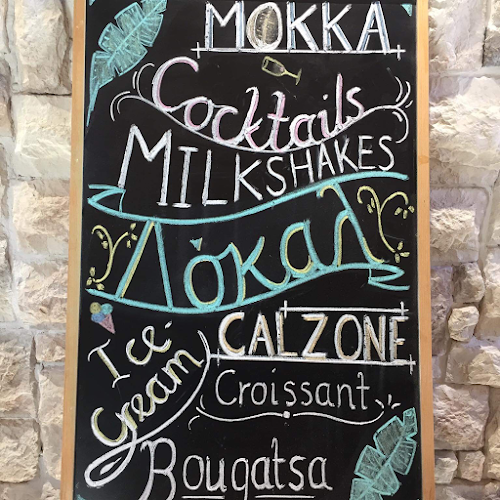 MOKKA
Cocktails
MILKSHAKES
Λόκαλ
Ice-
Cream
CALZONE
Croissant
Bougatsa